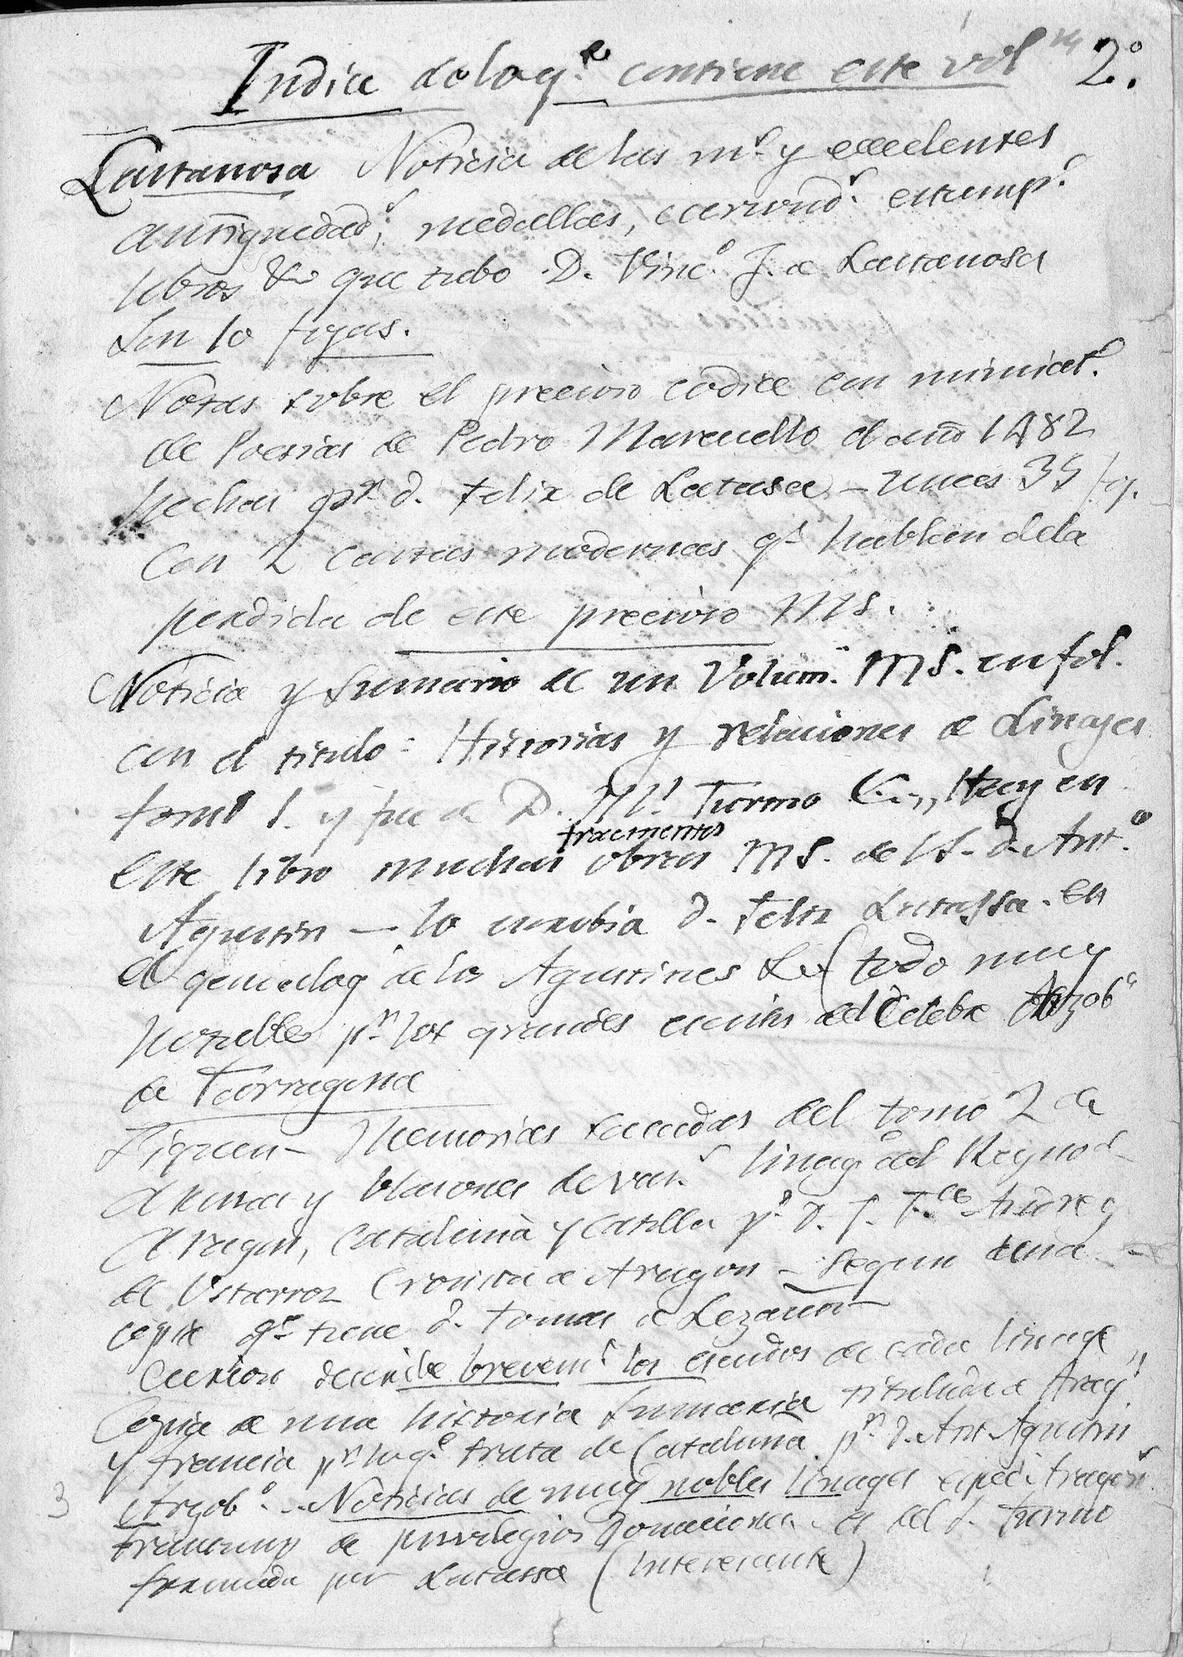 Indice de lo q.e contiene este vol 2.o
Lastanosa Noticia de las m.s y ecselentes
antiguedad.s, medallas, curiosid.s estamp.s
libros &c que tubo D. Vinc.o J. de Lastanosa
Son 10 fojas.
Notas sobre el precioso codice con miniat.s
de Poesias de Pedro Marcuello el año 1482
hechas p.r d. Felix de Latasa - unas 35 foj.
Con 2 cartas modernas q.e hablan dela
perdida de este precioso MS.
Noticia y Sumario de un Volum.n MS. en fol.
con el titulo: Historias y relaciones de Linages
tomo 1.o y fue de D. M.l Turmo &.,, Hay en
este libro muchos fragmentos obras MS. de Il. d. Ant.o
Agustin - lo d. Felix Latassa. en
el genealog de los Agustines todo muy
notable p.r los grandes del Celebre Arzob.o
de Tarragona
Siguen - Memorias sacadas del tomo 2 de
Armas y blasones de var.s linag.s del Reyno d
Aragon, Cataluña y Castilla p.r d. J. F.co Andres
de Ustarroz Cronista de Aragon - Segun una
copia q.e tiene d. Tomas de Lezaun -
describe brevem.e los escudos de cada linage,,
Copia de una historia Sumaria titulada Arag.n
y francia p.r lo q.e trata de Cataluña p.r d. Ant Agustin
Arzob.o - Noticias de muy nobles linages espec. Aragon.s
3
de privilegios donaciones. es del d. Turmo
firmada por Latassa (Interesante)